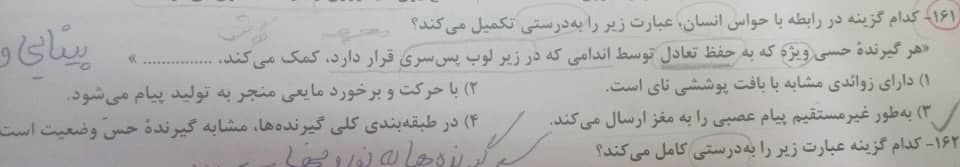 ۱۶۱- کدام گزینه در رابطه با حواس انسان، عبارت زیر را به‌درستی تکمیل می‌کند؟
«هر گیرندهٔ حسی ویژه که به حفظ تعادل توسط اندامی که در زیر لوب پس‌سری قرار دارد، کمک می‌کند، ............... »
بینایی و
۱) دارای زوائدی مشابه با بافت پوششی نای است.
۲) با حرکت و برخورد مایعی منجر به تولید پیام می‌شود.
۳) به‌طور غیرمستقیم پیام عصبی را به مغز ارسال می‌کند.
۴) در طبقه‌بندی کلی گیرنده‌ها، مشابه گیرندهٔ حسّ وضعیت است
۱۶۲- کدام گزینه عبارت زیر را به‌درستی کامل می‌کند؟
گیرنده‌ها به نور